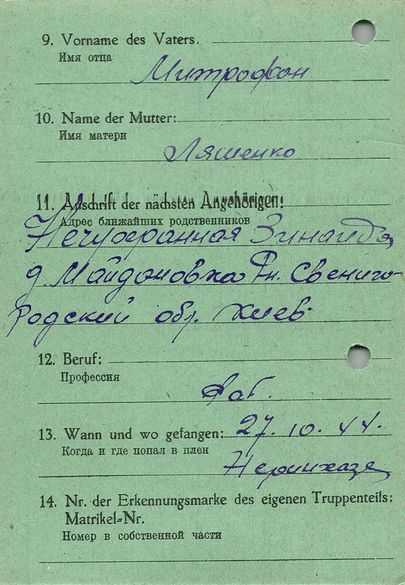 9. Vorname des Vaters.
Имя отца
Митрофон
10. Name der Mutter:
Имя матери
Ляшенко
11. Anschrift der nächsten Angehörigen:
Адрес ближайших родственников
Зинаида
д. Майдоновка Рн. Свениго-
родский обл. Киев-
12. Beruf:
Профессия
Раб.
13. Wann und wo gefangen: 27. 10. 44.
Когда и где попал в плен
14. Nr. der Erkennungsmarke des eigenen Truppenteils:
Matrikel-Nr.
Номер в собственной части